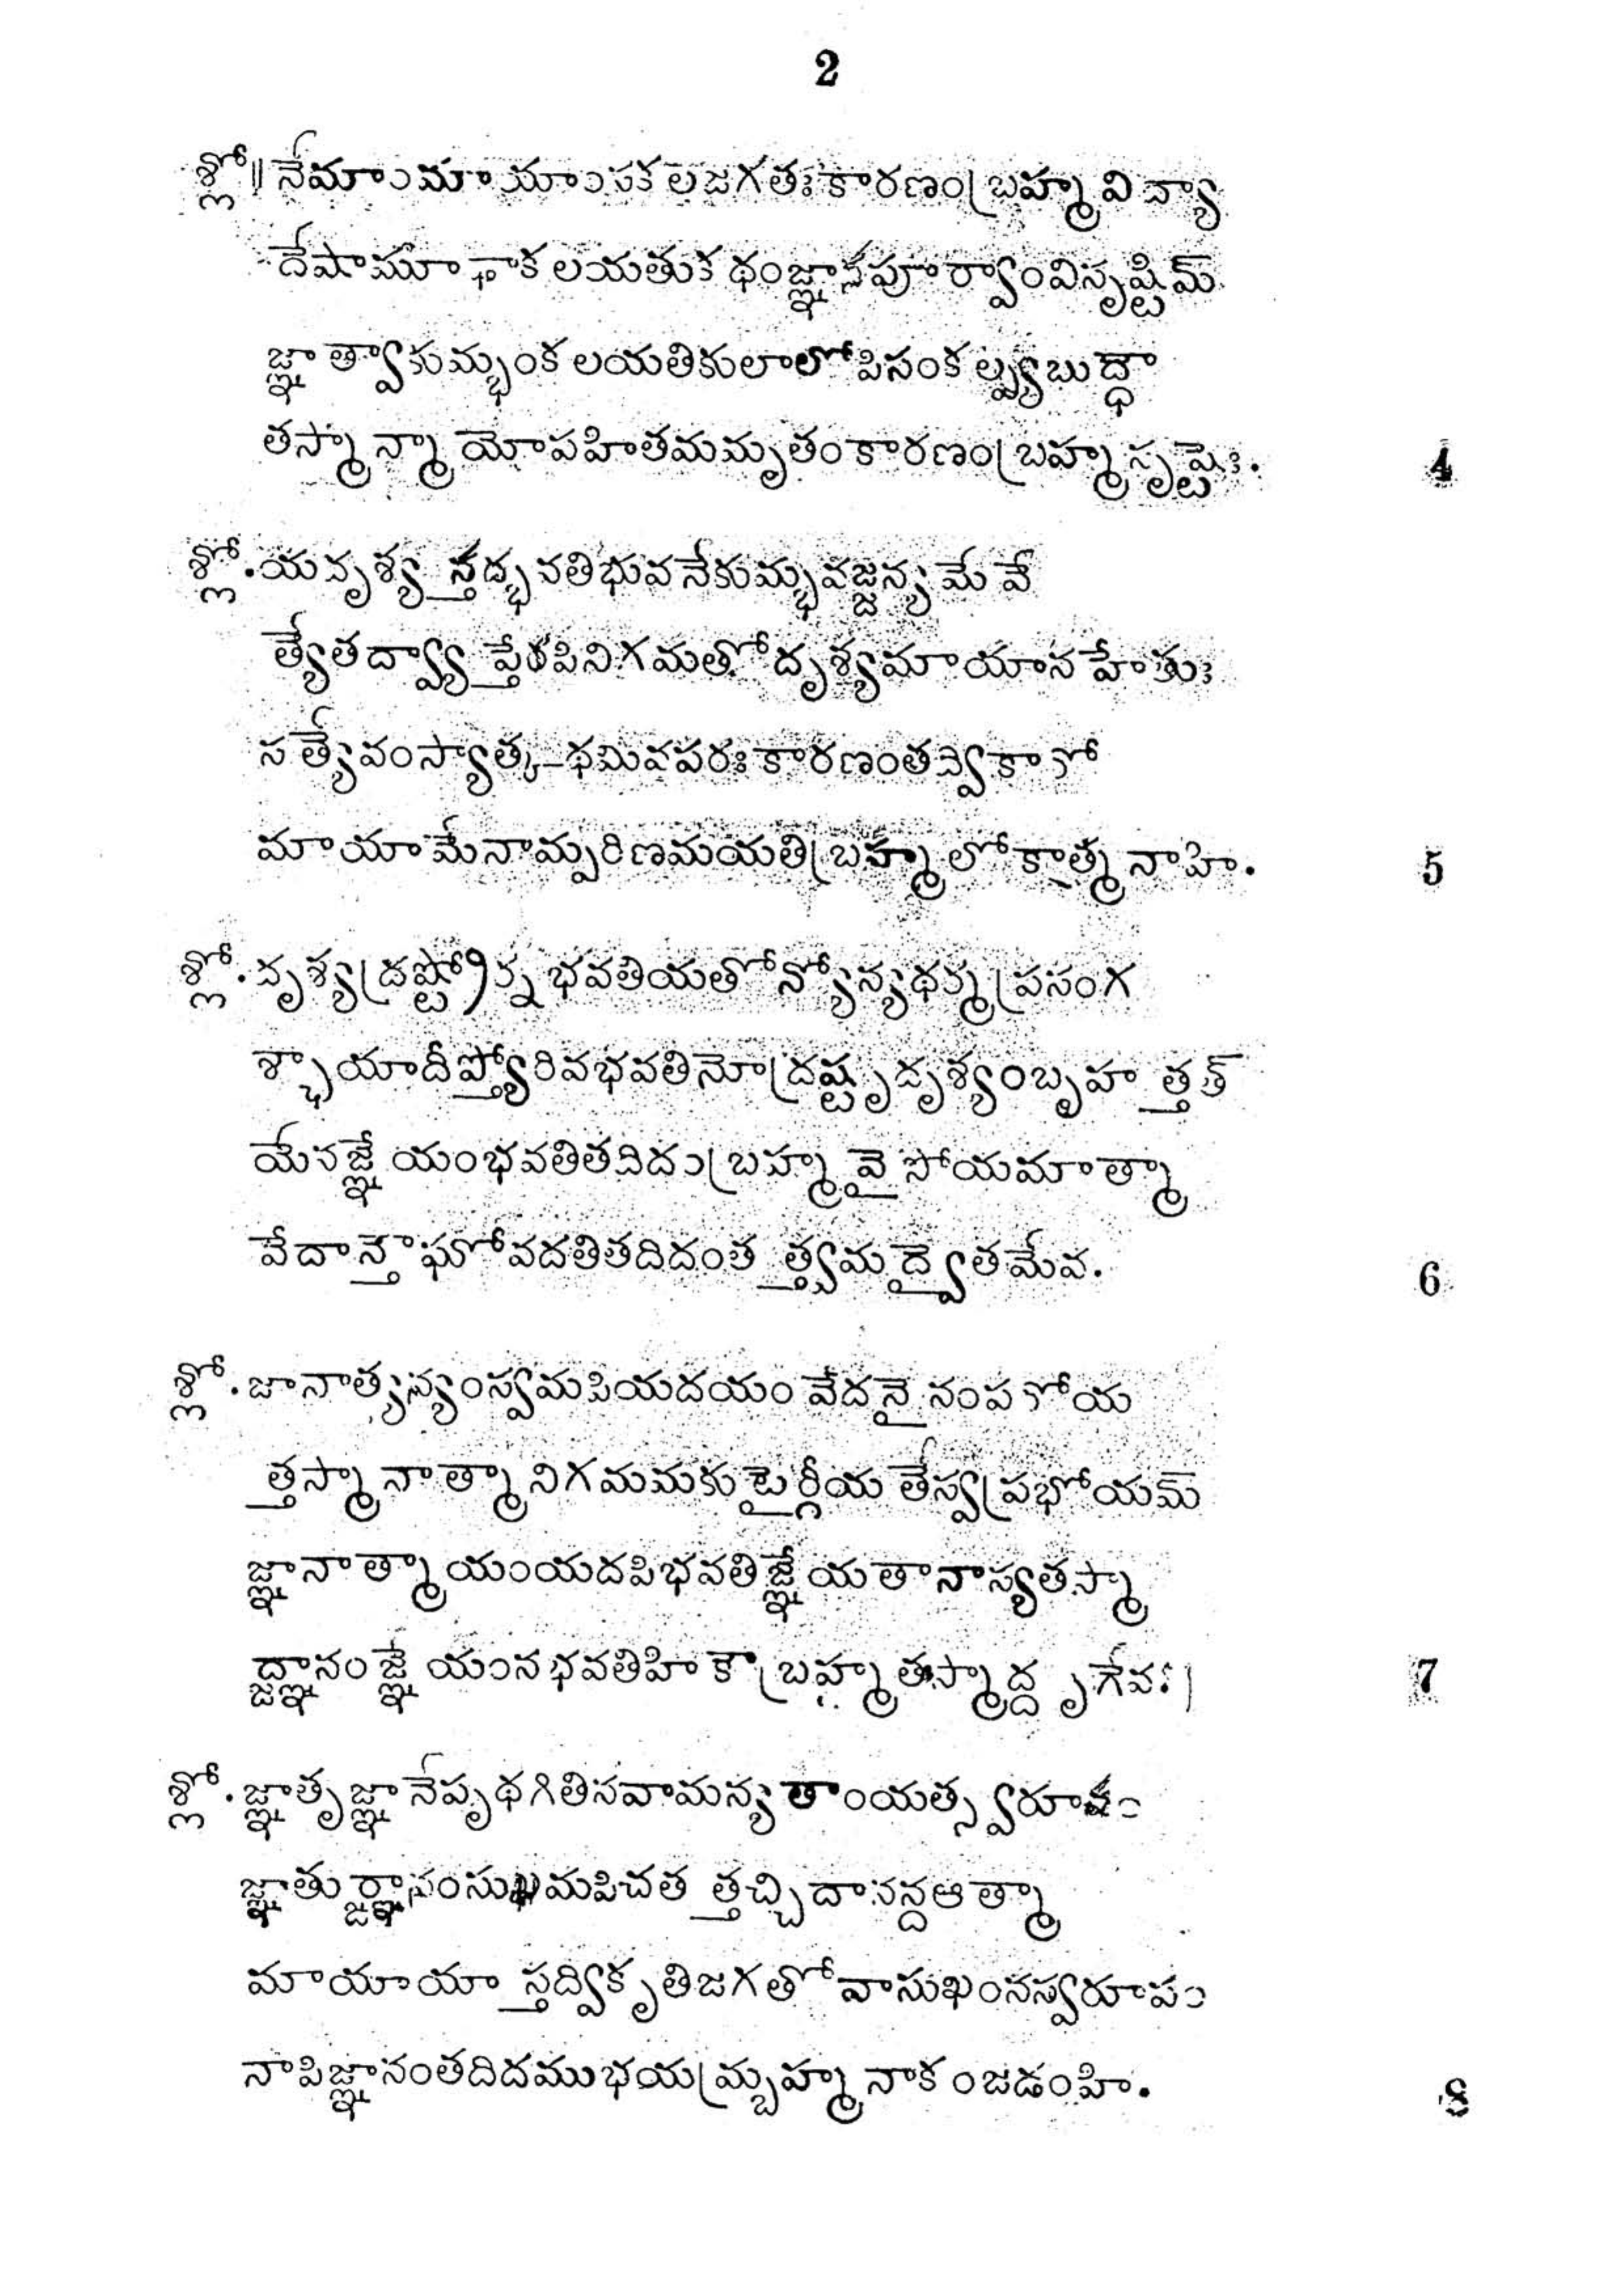 2
శ్లో॥ నేమాంమాయాంసకలజగతఃకారణంబ్రహ్మవిద్యా
దేషామూఢాకలయతుకథంజ్ఞానపూర్వాంవిసృష్టిమ్
జ్ఞాత్వాకుమ్భంకలయతికులాలోపిసంకల్ప్యబుద్ధ్యా
తస్మాన్మాయోపహితమమృతంకారణంబ్రహ్మసృష్టెః. 4
శ్లో. యదృశ్యన్తద్భవతిభువనేకుమ్భవజ్జన్యమేవే
త్యేతద్వ్యాప్తేరపినిగమతోదృశ్యమాయానహేతుః
సత్యేవంస్యాత్కథమివపరఃకారణంతద్వికారో
మాయామేనామ్పరిణమయతిబ్రహ్మలోకాత్మనాహి. 5
శ్లో. దృశ్యద్రష్ట్రోర్నభవతియతోన్యోన్యధర్మప్రసంగ
శ్ఛాయాదీప్త్యోరివభవతినోద్రష్టృదృశ్యంబృహత్తత్
యేనజ్ఞేయంభవతితదిదంబ్రహ్మవైసోయమాత్మా
వేదాన్తౌఘోవదతితదిదంతత్త్వమద్వైతమేవ. 6
శ్లో. జానాత్యన్యంస్వమపియదయంవేదనైనంపరోయ
త్తస్మానాత్మానిగమమకుటైర్గీయతేస్వప్రభోయమ్
జ్ఞానాత్మాయంయదపిభవతిజ్ఞేయతానాస్యతస్మా
ద్జ్ఞానంజ్ఞేయంనభవతిహికౌబ్రహ్మతస్మాద్దృగేవః। 7
శ్లో. జ్ఞాతృజ్ఞానేపృథగితినవామన్యతాంయత్స్వరూపం
జ్ఞాతుర్జ్ఞానంసుఖమపిచతత్తచ్చిదానన్దఆత్మా
మాయాయాస్తద్వికృతిజగతోవాసుఖంనస్వరూపం
నాపిజ్ఞానంతదిదముభయమ్బ్రహ్మనాకంజడంహి. 8